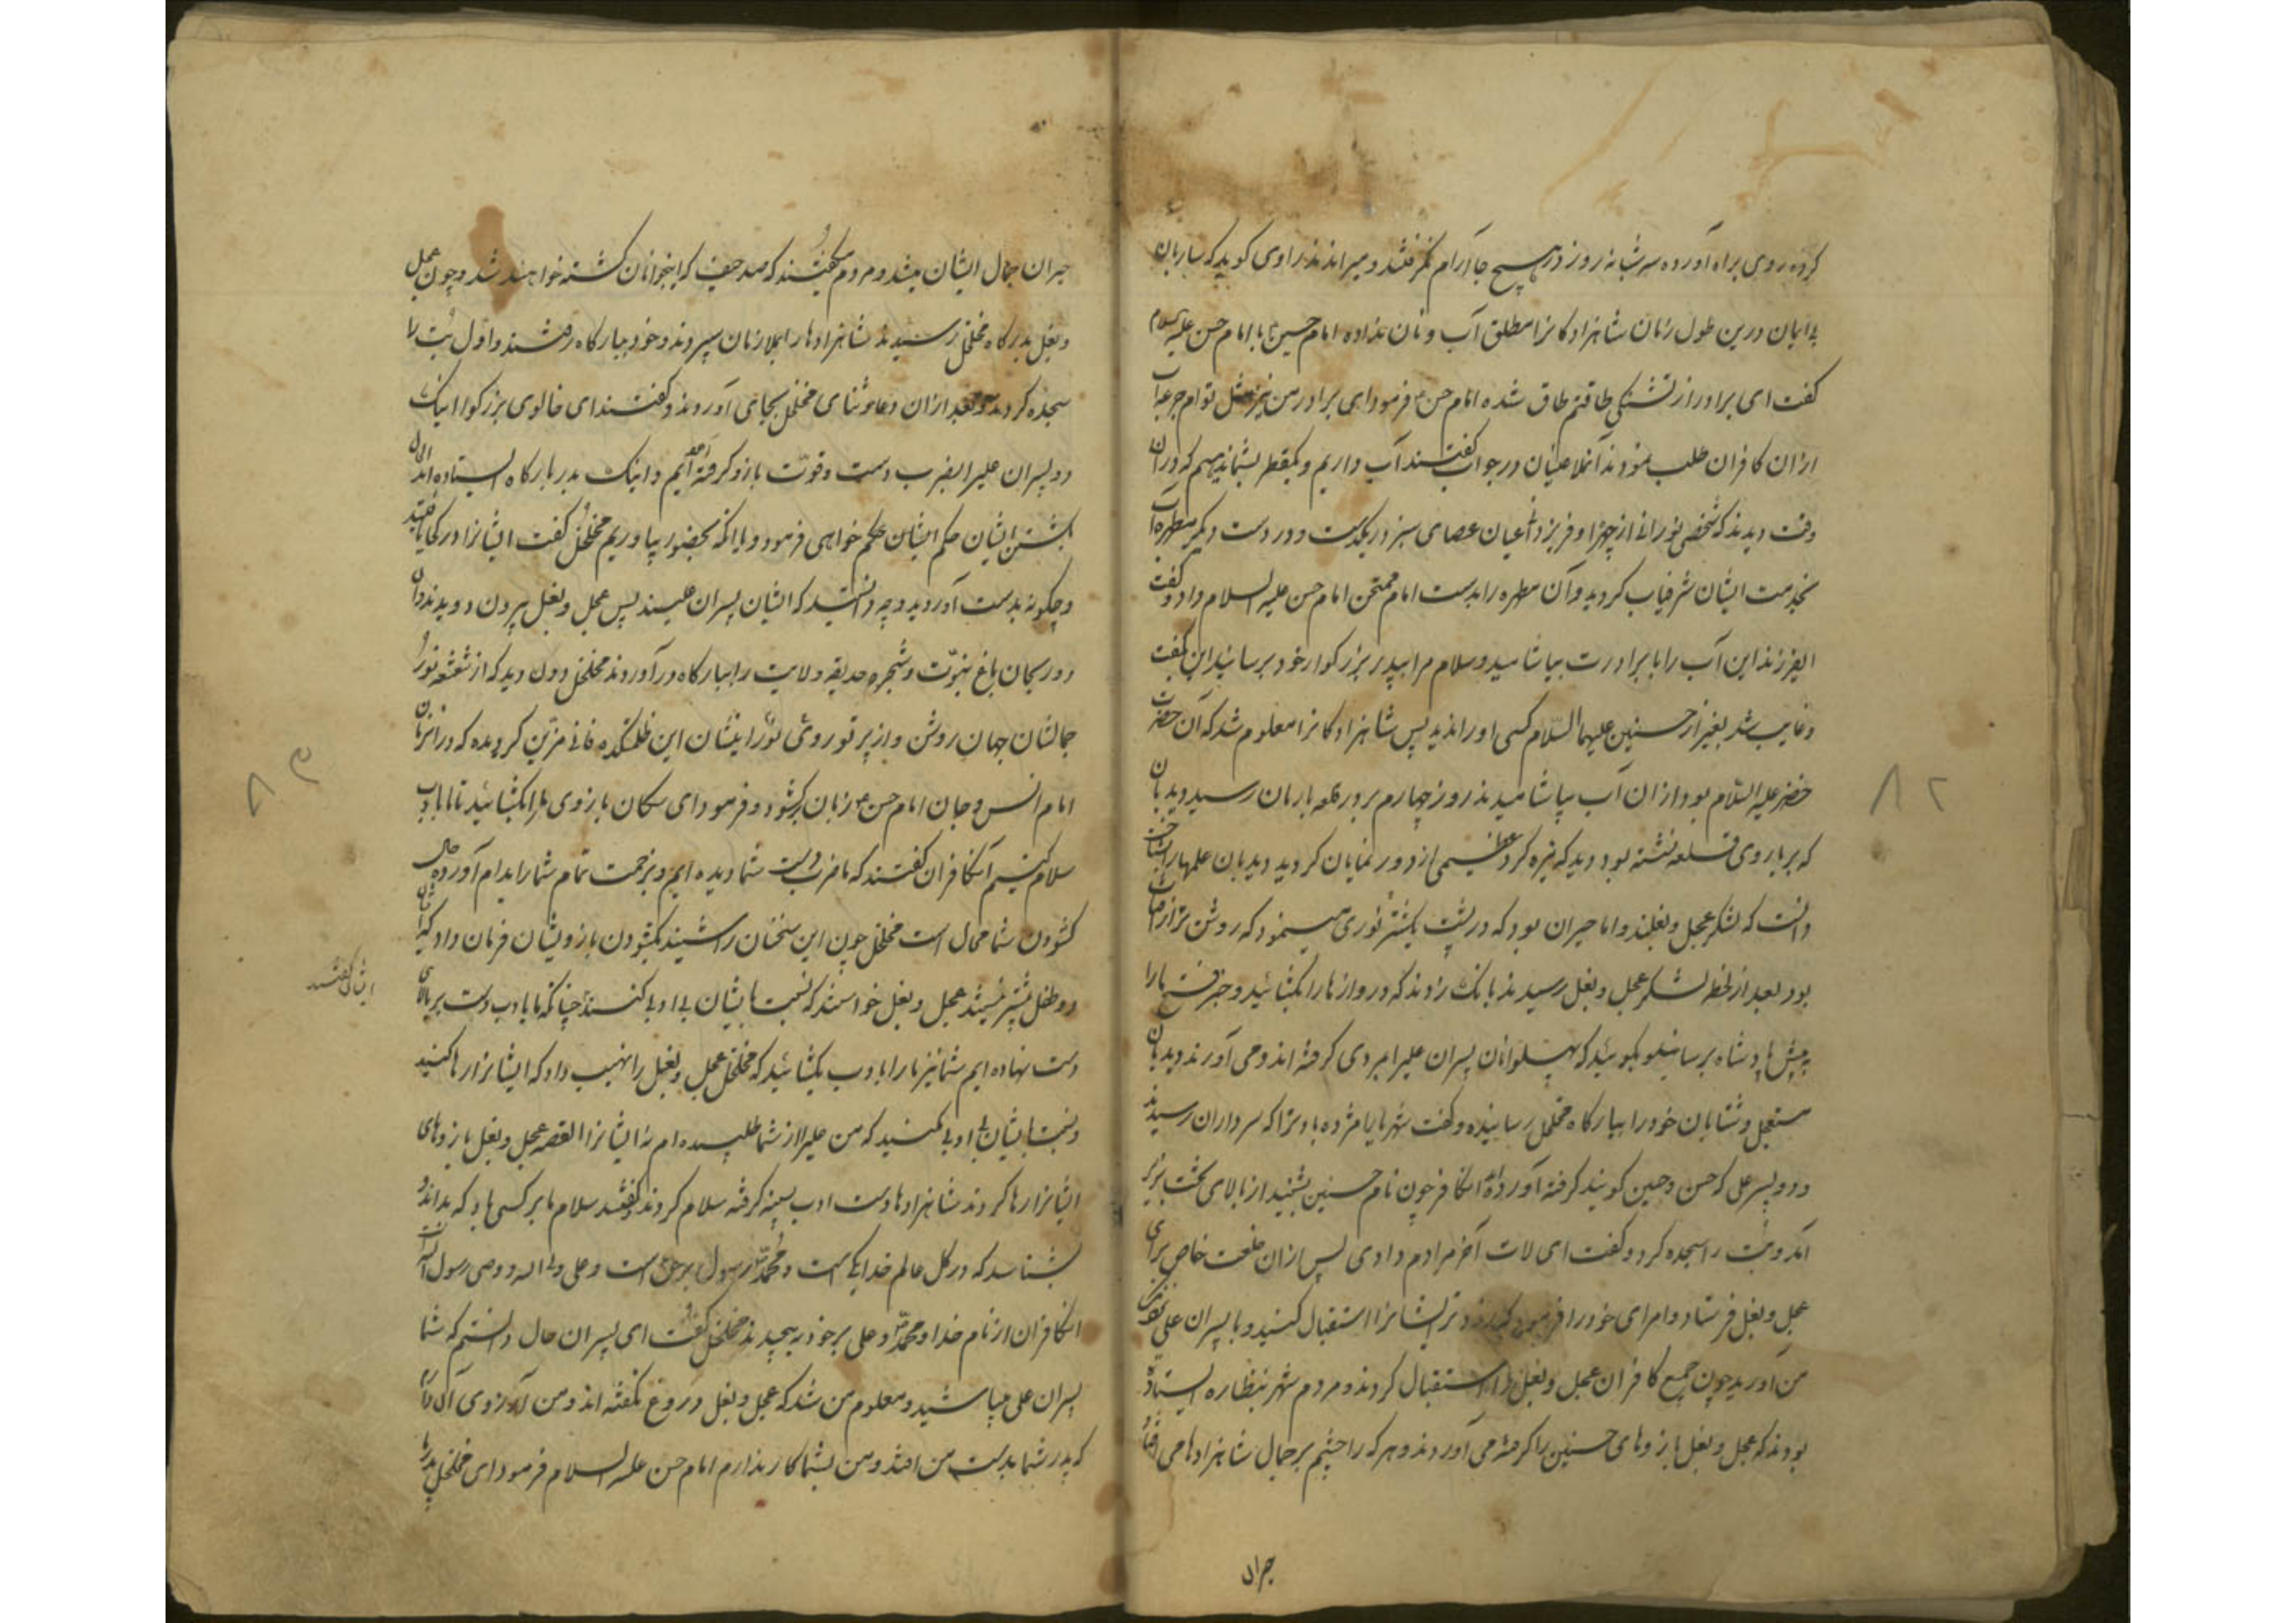 کرده روی براه آورده سه شبانه روز در هیچ جا آرام نمرفتند و میراندند راوی کوید که ساربان
بدایمان درین طول زمان شاهزادکانرا مطلق آب و نان نداده امام حسین با امام حسن علیه السلام
کفت ای برادر از تشنکی طاقتم طاق شده امام حسن فرمود ای برادر من نیز مثل توام جرعه آب
ازان کافران طلب نمودند آنملاعینان در جواب کفتند آب داریم و یکقطره بشما ندهیم که دران
وقت دیدند که شخصی نورانی از چهرا و فریزدان عیان عصای سبز در یکدست و در دست دیکر مطهره آب
بخدمت ایشان شرفیاب کردید و آن مطهره را بدست امام ممتحن امام حسن علیه السلام داد و کفت
ایفرزند این آب را با برادرت بیاشامید و سلام مرا بپدر بزرکوار خود برسانید این بکفت
و غایب شد بغیر از حسنین علیهما السلام کسی او را ندید پس شاهزادکانرا معلوم شد که آن حضرت
خضر علیه السلام بود ازان آب بیاشامیدند روز چهارم بدر قلعه باربان رسید دیدبان
که بر باروی قلعه نشسته بود دید که تیره کرد عظیمی از دور نمایان کردید دیدبان علمها را شناخت
دانست که لشکر عجل و بغلند و اما حیران بود که در پشت یکشتر نوری مینمود که روشن تر از آفتاب
بود بعد از لحظه لشکر عجل و بغل رسیدند بانک زدند که دروازها را بکشائید و خبر فتح ما را
به پیش پادشاه برسانید و بکوئید که پهلوانان پسران علیرا بمردی کرفته اند و می آورند دیدبان
مستعجل و شتابان خود را ببارکاه مخلخل رسانیده و کفت شهریارا مژده باد ترا که سرداران رسیدند
و دو پسر علی که حسن و حسین کویند کرفته آورده اند انکافر چون نام حسنین بشنید از بالای تخت بزیر
آمد و بت را سجده کرد و کفت ای لات آخر مرادم دادی پس ازان خلعت خاص برای
عجل و بغل فرستاد و امرای خود را فرمود که زودتر ایشانرا استقبال کنید و با پسران علی بنزد
من آورید چون جمیع کافران عجل و بغل را استقبال کردند و مردم شهر بنظاره ایستاده
بودند که عجل و بغل بازوهای حسنین را کرفته می آوردند و هر که را چشم بر جمال شاهزادها می افتاد
حیران
۸۲
حیران جمال ایشان میشد و مردم میکفتند که صد حیف که اینجوانان کشته خواهند شد و چون عجل
و بغل بدرکاه مخلخل رسیدند شاهزادها را بملازمان سپردند و خود ببارکاه رفتند و اول بت را
سجده کردند و بعد ازان دعا و ثنای مخلخل بجای آوردند و کفتند ای خالوی بزرکوار اینک
دو پسران علیرا بضرب دست و قوت بازو کرفته آمده ایم و اینک بدر بارکاه ایستاده اند الحال
بکشتن ایشان حکم ایشان حکم خواهی فرمود و یا انکه بحضور بیاوریم مخلخل کفت ایشانرا در کجا یافتید
و چکونه بدست آوردید و چه دانستید که ایشان پسران علیند پس عجل و بغل بیرون دویدند و آن
دو ریحان باغ نبوت و شجره حدیقه ولایت را ببارکاه درآوردند مخلخل دون دید که از شعشعه نور
جمالشان جهان روشن و از پرتو روی نور ایشان این ظلمتکده فانی مزین کردیده که در انزمان
امام انس و جان امام حسن زبان برکشود و فرمود ای سکان بازوی ما را بکشائید تا ما با ادب
سلام کنیم آنکافران کفتند که ما ضرب دست شما دیده ایم و بزحمت تمام شما را بدام آورده حال
کشودن شما محال است مخلخل چون این سخنان را شنید بکشودن بازو یشان فرمان داد که این
دو طفل بیشتر نیستند عجل و بغل خواستند که نسبت بایشان بی ادبی کنند چنانکه ما با ادب دست بر بالای
ایشان کفتند
دست نهاده ایم شما نیز ما را با ادب بکشائید که مخلخل عجل و بغل را نهیب داد که ایشانرا رها کنید
و نسبت بایشان بی ادبی مکنید که من علیرا از شما طلبیده ام نه ایشانرا القصه عجل و بغل بازوهای
ایشانرا رها کردند شاهزادها دست ادب بسینه کرفته سلام کردند و کفتند سلام ما بر کسی باد که بداند و
بشناسد که در کل عالم خدا یکی است و محمد رسول برحق است و علی ولی اله و وصی رسول الله است
انکافران از نام خدا و محمد و علی بر خود بپیچیدند مخلخل کفت ای پسران حال دانستم که شما
پسران علی میباشید و معلوم من شد که عجل و بغل دروغ نکفته اند و من آرزوی آن دارم
که پدر شما بدست من افتد و من بشما کار ندارم امام حسن علیه السلام فرمود ای مخلخل پدر ما
۸۳